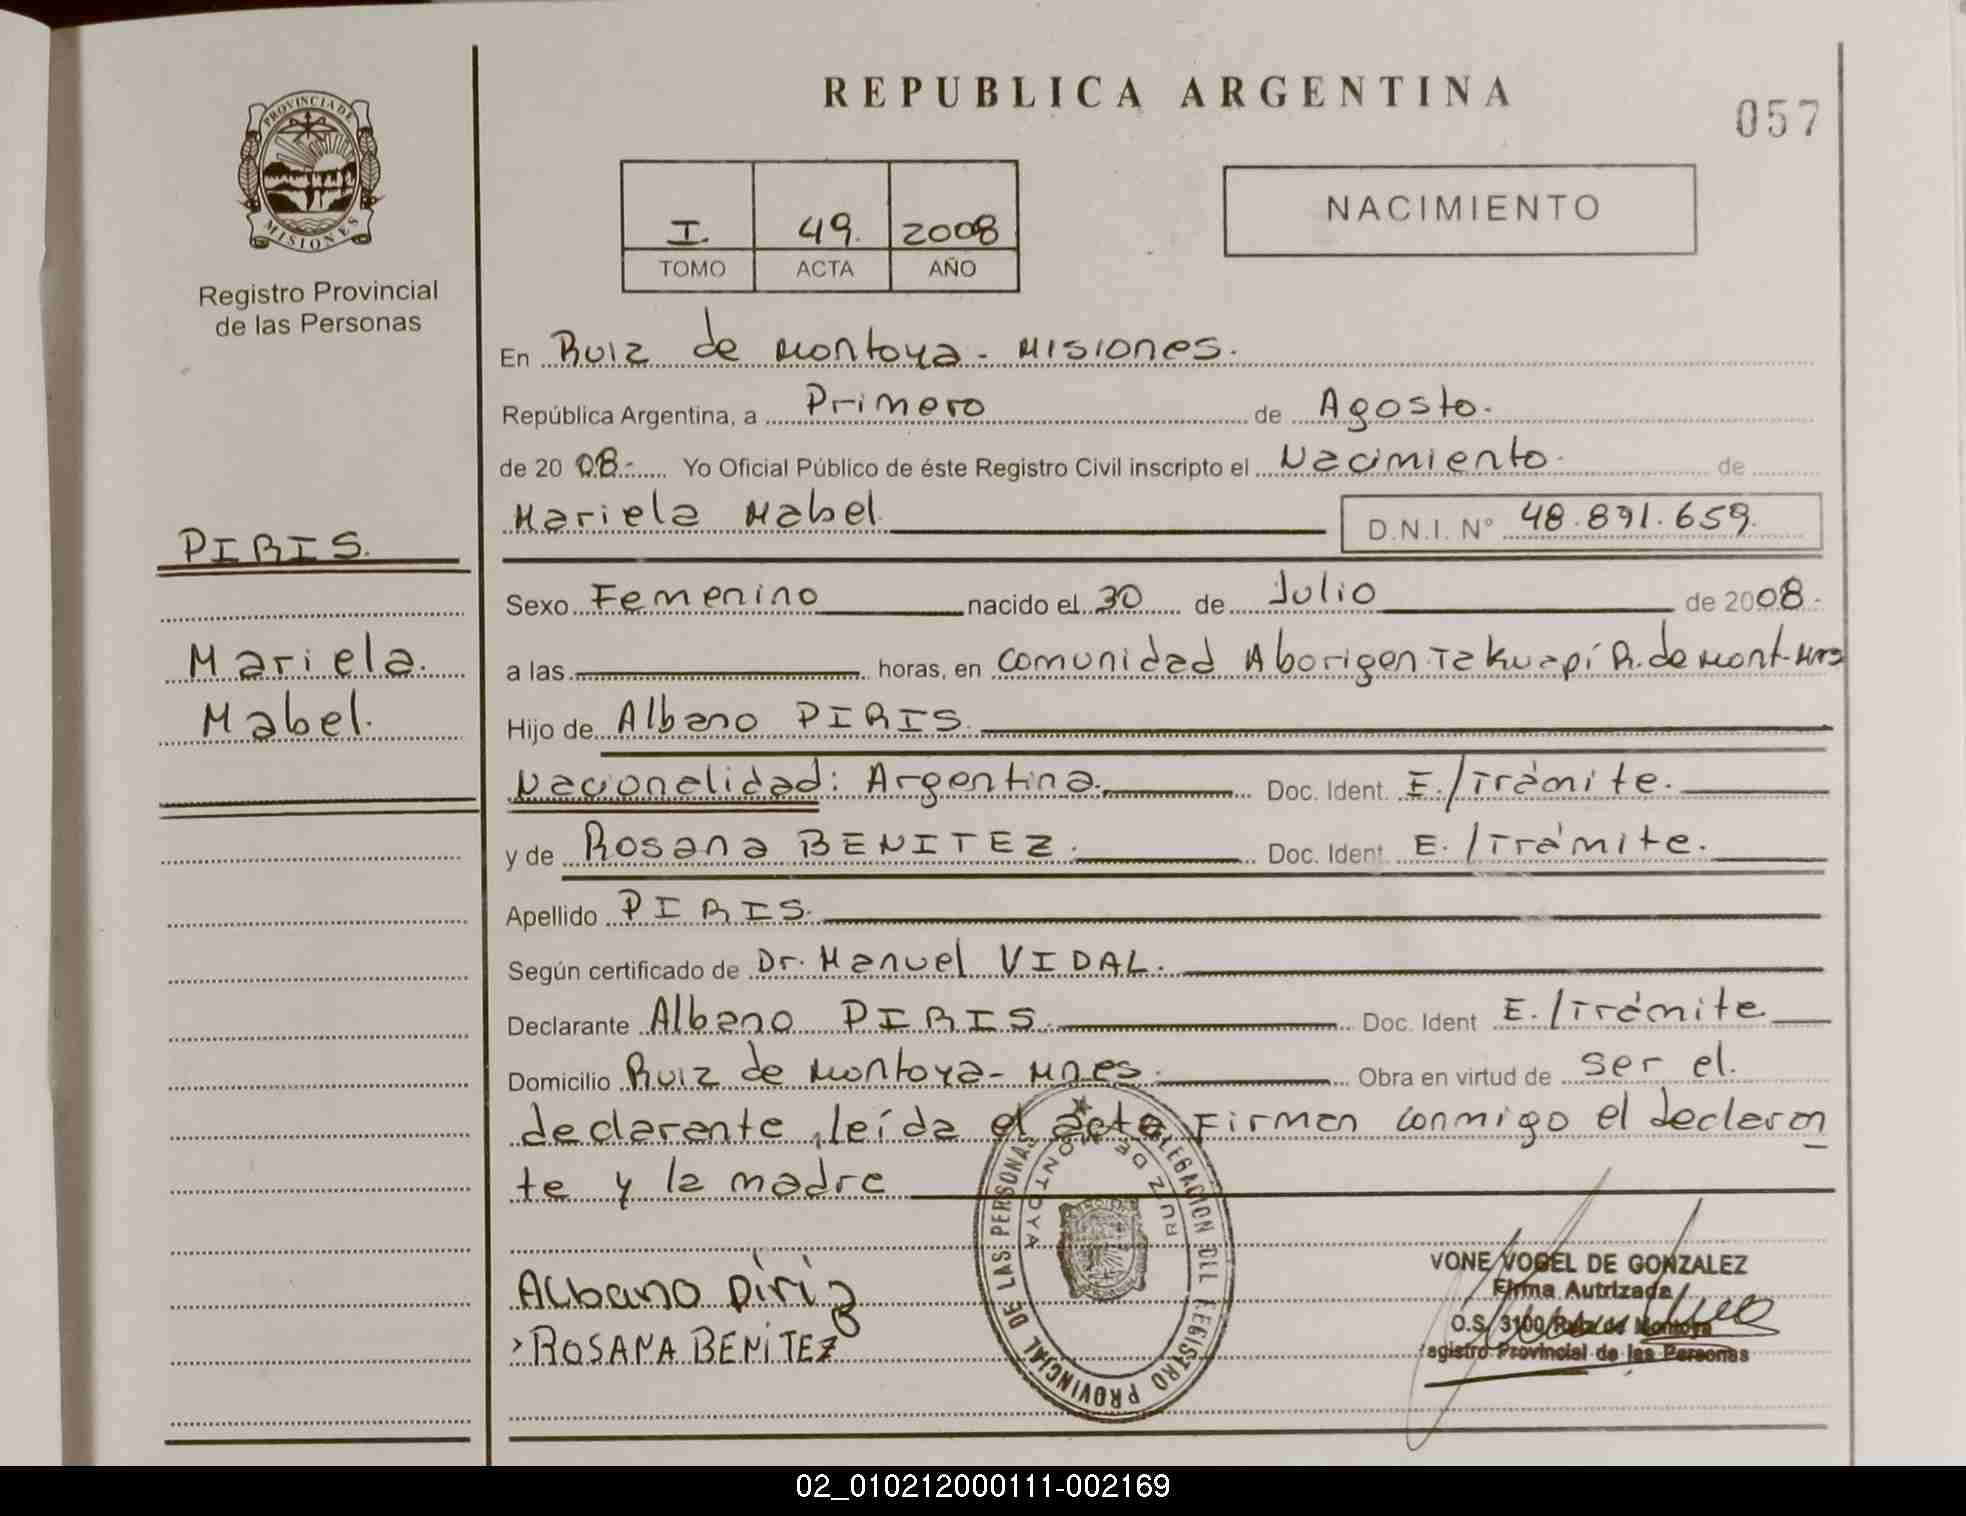 REPUBLICA ARGENTINA
057
PROVINCIA DE
MISIONES
Registro Provincial
de las Personas
I. 49. 2008
TOMO ACTA AÑO
NACIMIENTO
En Ruiz de Montoya - Misiones.
República Argentina, a Primero de Agosto.
de 20 08.- Yo Oficial Público de éste Registro Civil inscripto el Nacimiento. de
Mariela Mabel. D.N.I. N° 48.891.659.
PIRIS.
Mariela.
Mabel.
Sexo Femenino nacido el 30 de Julio de 2008.-
a las horas, en Comunidad Aborigen Takuapí R. de Mont-Mns
Hijo de Albano PIRIS.
Nacionalidad: Argentina. Doc. Ident. E./Trámite.
y de Rosana BENITEZ. Doc. Ident. E./Trámite.
Apellido PIRIS.
Según certificado de Dr. Manuel VIDAL.
Declarante Albano PIRIS. Doc. Ident E./Trámite
Domicilio Ruiz de Montoya - Mnes. Obra en virtud de ser el.
declarante, leída el acta Firman conmigo el declaran
te y la madre
DELEGACION DEL REGISTRO PROVINCIAL DE LAS PERSONAS
RUIZ DE MONTOYA
Albano Piriz
ROSANA BENITEZ
VONE VOGEL DE GONZALEZ
Firma Autrizada
O.S. 3100 Ruiz de Montoya
egistro Provincial de las Personas
02_010212000111-002169